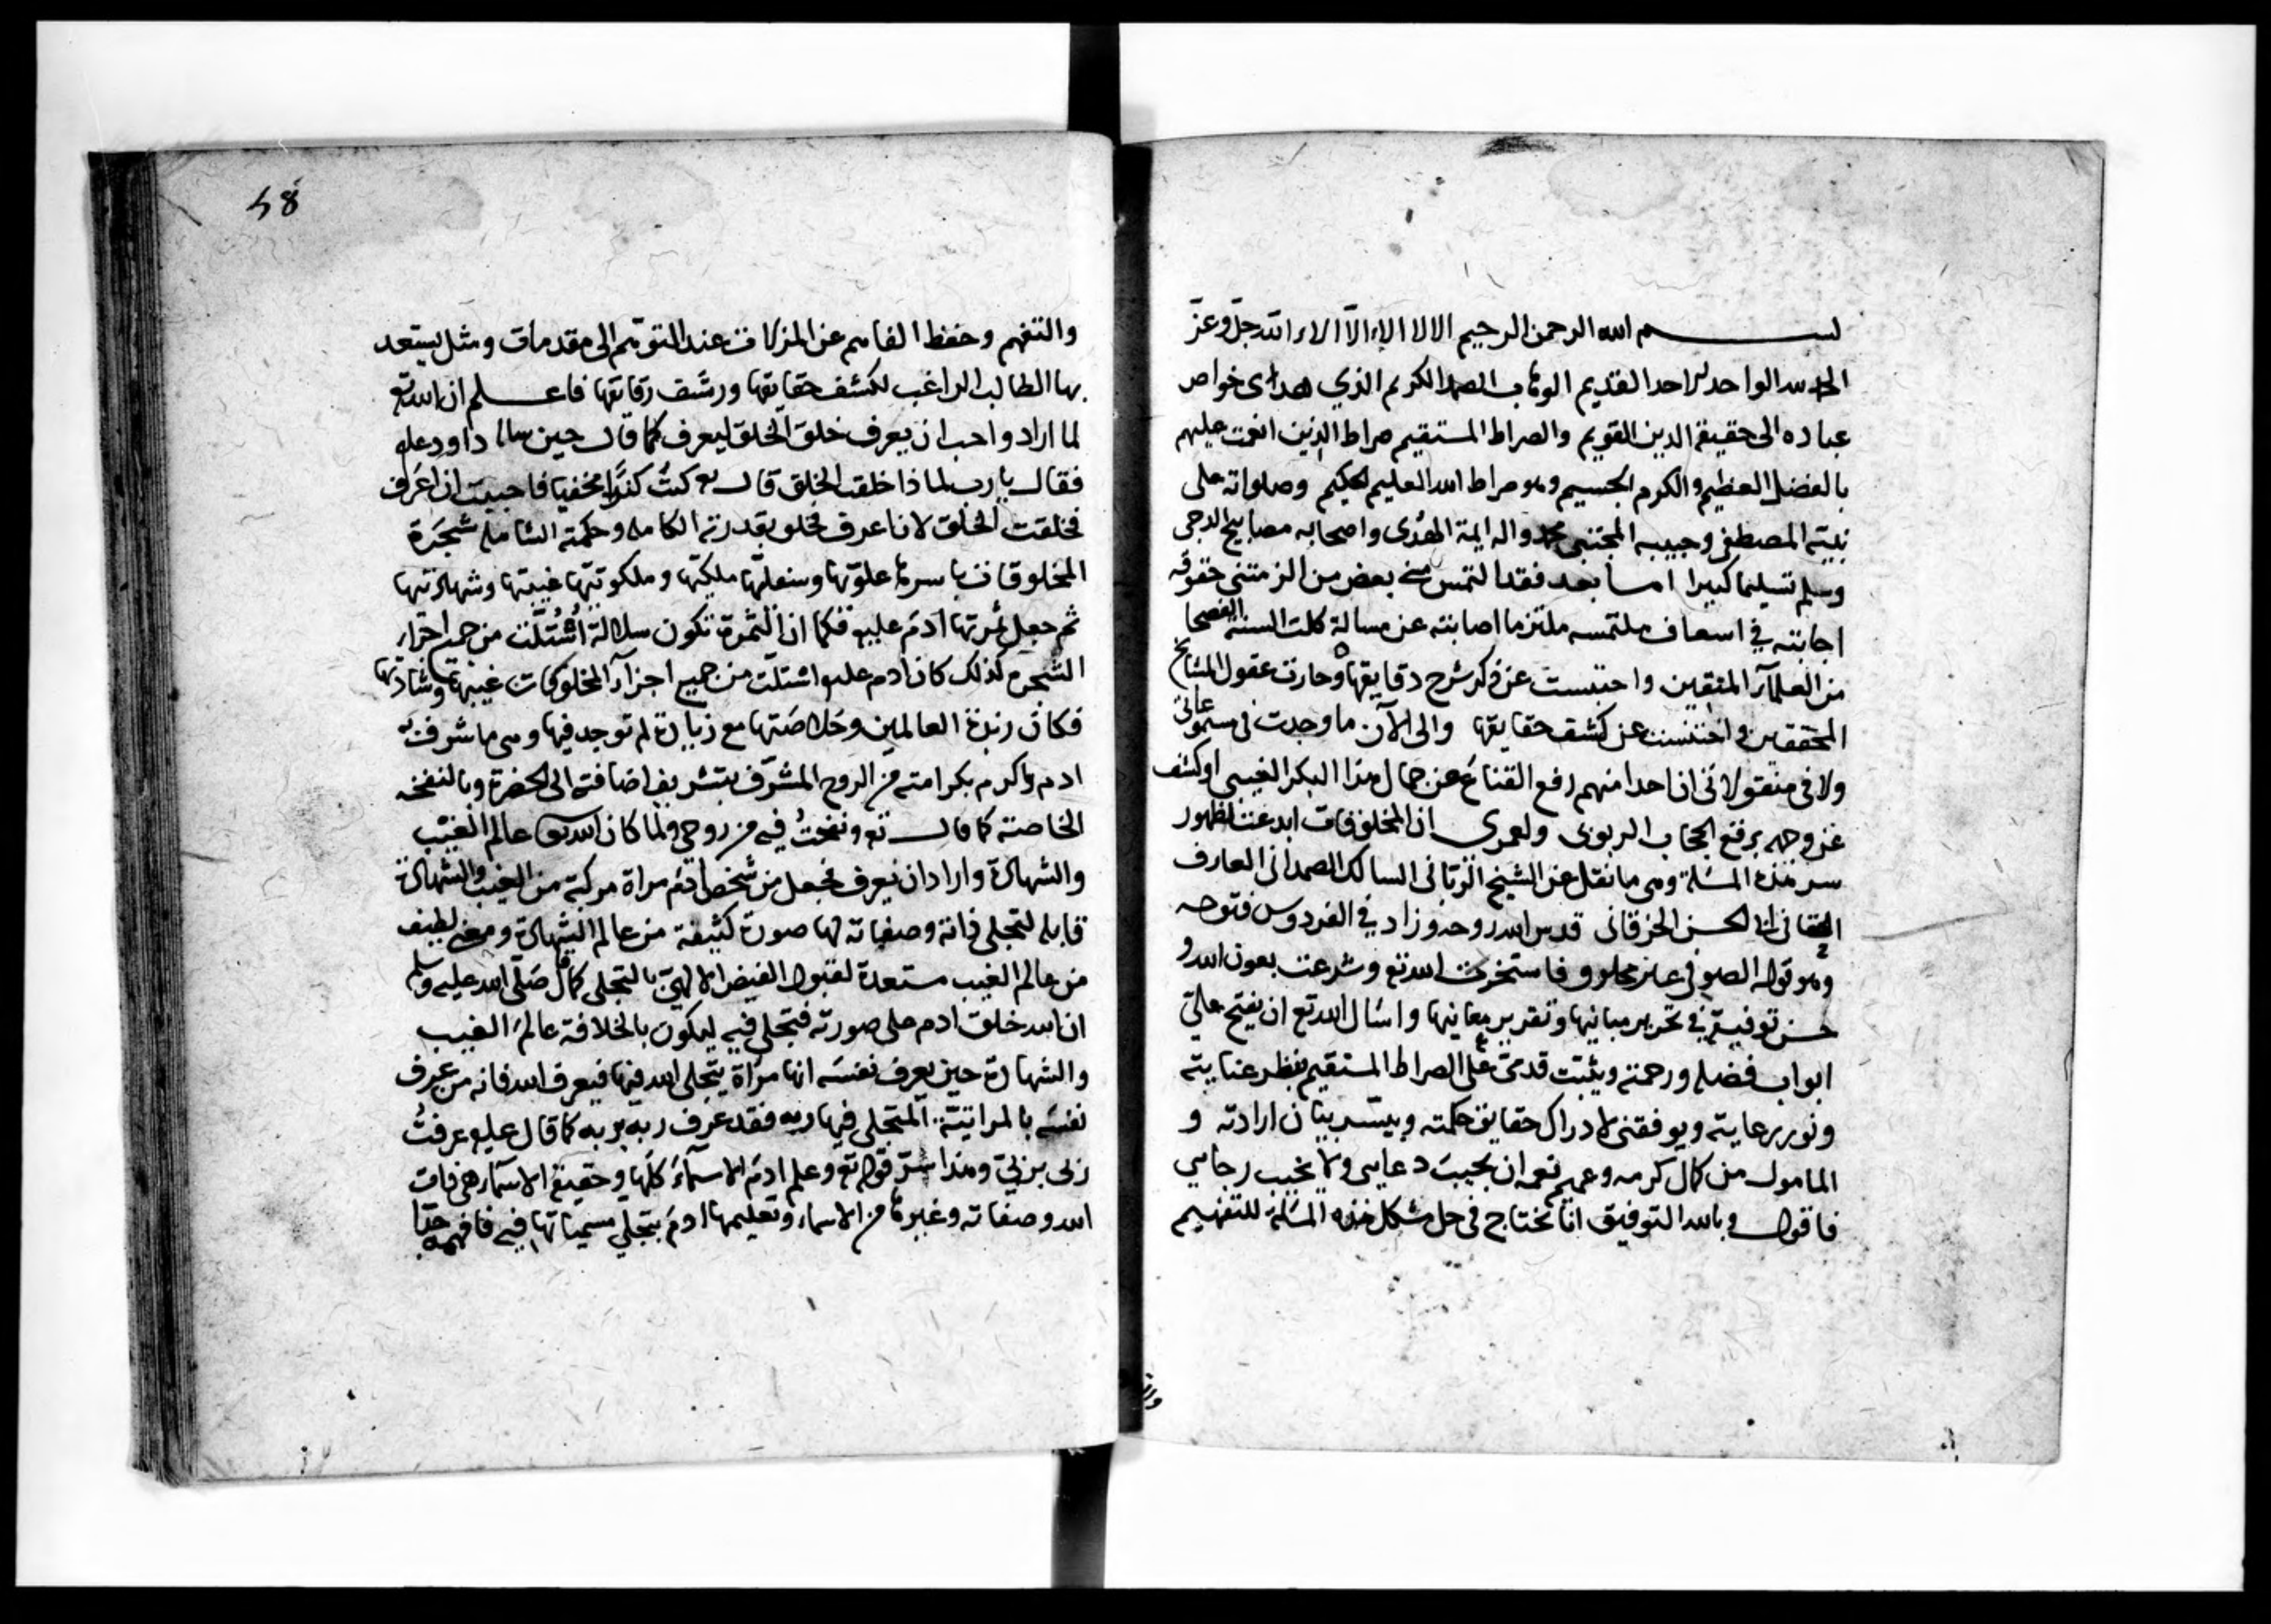 بسم الله الرحمن الرحيم الا لا الاء الا الاء الله جل وعز
الحمد لله الواحد الاحد القديم الوهاب الصمد الكريم الذي هدى خواص
عباده الى حقيقة الدين القويم والصراط المستقيم صراط الذين انعمت عليهم
بالفضل العظيم والكرم الجسيم وهو صراط الله العليم الحكيم وصلواته على
نبيه المصطفى وحبيبه المجتبى محمد واله ايمة الهدى واصحابه مصابيح الدجى
وسلم تسليما كبيرا اما بعد فقد التمس مني بعض من الزمتني حقوقه
اجابته في اسعاف ملتمسه ملتزما اصابته عن مسالة كلت السنة الفصحا
من العلمآء المتقين واحتبست عن ذكر شرح دقايقها وحارت عقول المشايخ
المحققين واختنست عن كشف حقايقها والى الآن ما وجدت في مسموعاتي
ولا في منقولاتي ان احدا منهم رفع القناع عن جمال هذا البكر الغيبي او كشف
عن وجهه برفع الحجاب الربوبي ولعمري ان المخلوقات ابدعت لظهور
سر هذه المسئلة وهي ما نقل عن الشيخ الرباني السالك الصمداني العارف
الحقاني ابي الحسن الخرقاني قدس الله روحه وزاد في الفردوس فتوحه
وهو قوله الصوفي غير مخلوق فاستخرت الله تع وشرعت بعون الله و
حسن توفيقه في تحرير مبانيها وتقرير معانيها واسال الله تع ان يفتح علي
ابواب فضله ورحمته ويثبت قدمي على الصراط المستقيم بنظر عنايته
ونور رعايته ويوفقني لادراك حقايق حكمته وييسر بيان ارادته و
المامول من كمال كرمه وعميم نعمه ان يجيب دعايي ولا يخيب رجايي
فاقول وبالله التوفيق انا نحتاج في حل مشكل هذه المسئلة للتفهيم
58
والتفهم وحفظ الفاهم عن المزلات عند التوهم الى مقدمات ومثل يستعد
بها الطالب الراغب لكشف حقايقها ورشف رقايقها فاعلم ان الله تع
لما اراد واحب ان يعرف خلق الخلق ليعرف كما قال حين ساله داود عليه
فقال يا رب لماذا خلقت الخلق قال تع كنت كنزا مخفيا فاحببت ان اعرف
فخلقت الخلق لان اعرف فخلق بقدرته الكاملة وحكمته الشاملة شجرة
المخلوقات باسرها علويها وسفليها ملكيها وملكوتيها غيبيها وشهاديتها
ثم جعل ثمرتها آدم عليه فكما ان الثمرة تكون سلالة استلت من جميع اجزاء
الشجرة كذلك كان ادم عليه استلت من جميع اجزاء المخلوقات غيبيها وشهاديتها
فكان زبدة العالمين وخلاصتها مع زيادة لم توجد فيها وهي ما شرف به
ادم واكرم بكرامته من الروح المشرف بتشريف اضافته الى الحضرة وبالنفخة
الخاصة كما قال تع ونفخت فيه من روحي ولما كان الله تعالى عالم الغيب
والشهادة واراد ان يعرف فجعل من شخص آدم مراة مركبة من الغيب والشهادة
قابلة لتجلي ذاته وصفاته لها صورة كثيفة من عالم الشهادة ومعنى لطيف
من عالم الغيب مستعدة لقبول الفيض الالهي بالتجلي كما قال صلى الله عليه وسلم
ان الله خلق ادم على صورته فتجلى فيه ليكون بالخلافة عالم الغيب
والشهادة حين يعرف نفسه انها مرآة يتجلى الله فيها فيعرف الله فانه من عرف
نفسه بالمراتية المتجلي فيها ربه فقد عرف ربه بربه كما قال عليه عرفت
ربي بربي وهذا سر قوله تع وعلم ادم الاسمآء كلها وحقيقة الاسمآء هي ذات
الله وصفاته وغيرها من الاسماء وتعليمها ادم بتجلي مسمياتها فيه فافهم جدا